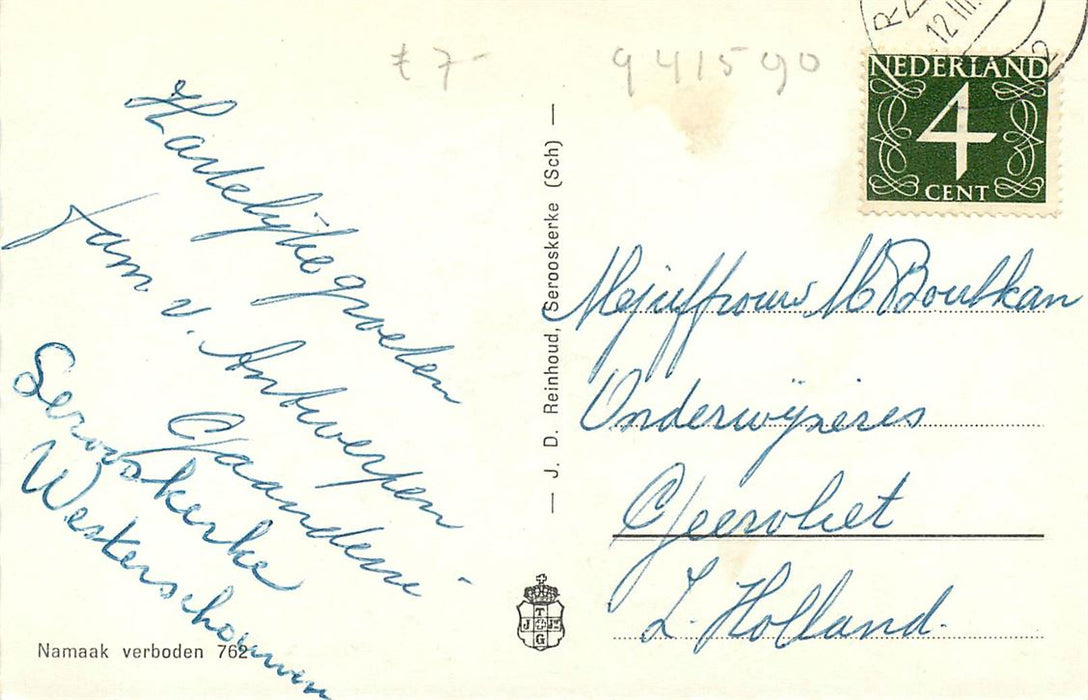 £ 7-
941590
12 III
NEDERLAND
4
CENT
Hartelijke groeten
fam v. Antwerpen
Serooskerke
Westerschouwen
— J. D. Reinhoud, Serooskerke (Sch) —
Mejuffrouw M Boutkan
Onderwijzeres
Geervliet
Z. Holland.
T
J J
G
Namaak verboden 762